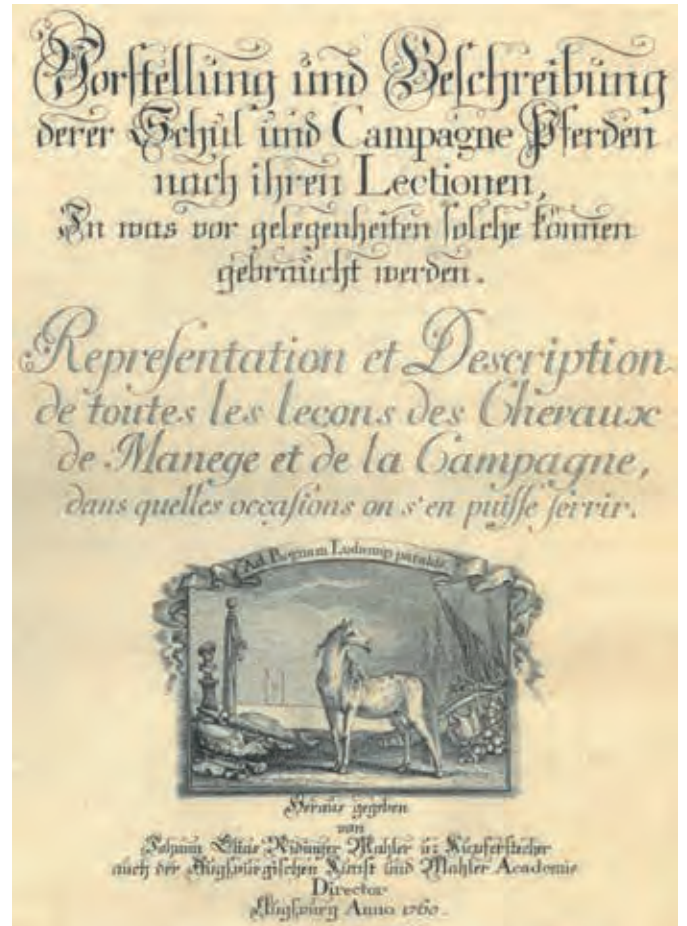 Vorstellung und Beschreibung
derer Schul und Campagne Pferden
nach ihren Lectionen,
In was vor gelegenheiten solche können
gebraucht werden.
Repreſentation et Description
de toutes les leçons des Chevaux
de Manege et de la Campagne,
dans quelles occaſions on s'en puiſſe ſervir.
Ad Pugnam Ludumq paratus
Heraus gegeben
von
Johann Elias Ridinger Mahler u: Kupferstecher
auch der Augspurgischen Kunst und Mahler Academie
Director
Augspurg Anno 1760.